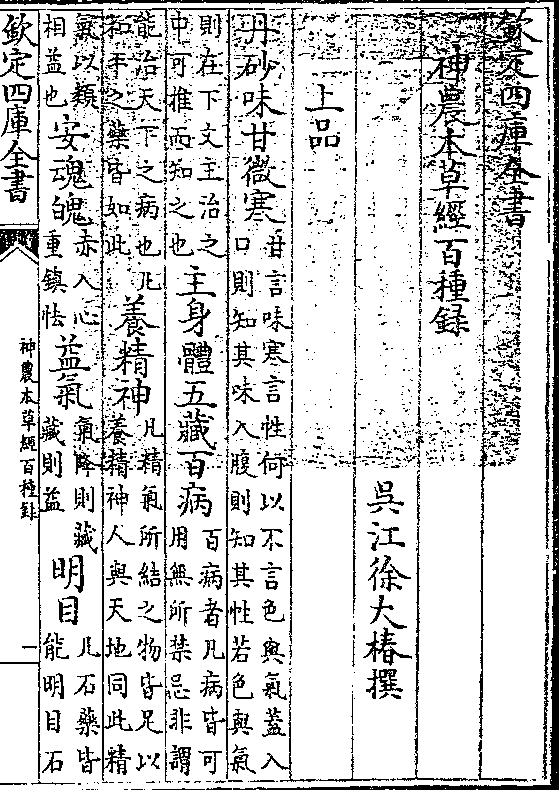 欽定四庫全書
神農本草經百種録
吳江徐大椿撰
上品
丹砂味甘微寒甘言味寒言性何以不言色與氣蓋入口則知其味入腹則知其性若色與氣
則在下文主治之中可推而知之也主身體五藏百病百病者凡病皆可用無所禁忌非謂
能治天下之病也凡和平之藥皆如此養精神凡精氣所結之物皆足以養精神人與天地同此精
氣以類相益也安魂魄赤入心重鎮怯益氣氣降則藏藏則益明目凡石藥皆能明目石
欽定四庫全書
神農本草經百種録
一